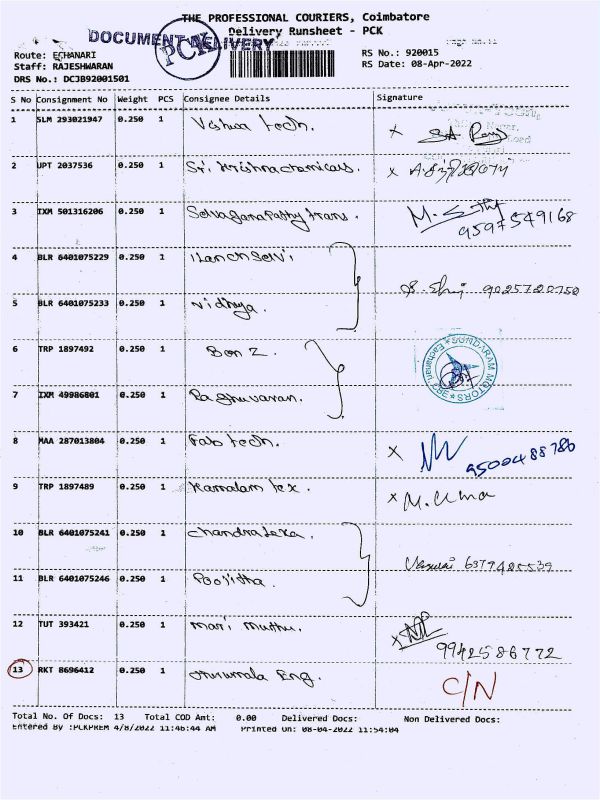 THE PROFESSIONAL COURIERS, Coimbatore
DOCUMENT DELIVERY
PCK
Delivery Runsheet - PCK
Route: ECHANARI
Staff: RAJESHWARAN
DRS No.: DCJB92001501
RS No.: 920015
RS Date: 08-Apr-2022
S No Consignment No Weight PCS Consignee Details Signature
1 SLM 293021947 0.250 1 Vishwa tech.
2 JPT 2037536 0.250 1 Sri Krishna chemicals
3 IXM 501316206 0.250 1 Selvaganapathy trans. 9597549168
4 BLR 6401075229 0.250 1 Ilanchselvi
9025720750
5 BLR 6401075233 0.250 1 Vidhya.
6 TRP 1897492 0.250 1 Ben Z.
SUNDARAM MOTORS
7 IXM 49986801 0.250 1 Raghuvaran.
8 MAA 287013804 0.250 1 Fab tech. X 9500488786
9 TRP 1897489 0.250 1 Kamalam tex. X M. Uma
10 BLR 6401075241 0.250 1 Chandraleka.
11 BLR 6401075246 0.250 1 Poojitha.
12 TUT 393421 0.250 1 Mari Muthu. 9942586772
13 RKT 8696412 0.250 1 Thirumala Eng. C/N
Total No. Of Docs: 13 Total COD Amt: 0.00 Delivered Docs: Non Delivered Docs:
Entered By :PCKPREM 4/8/2022 11:46:44 AM Printed On: 08-04-2022 11:54:04